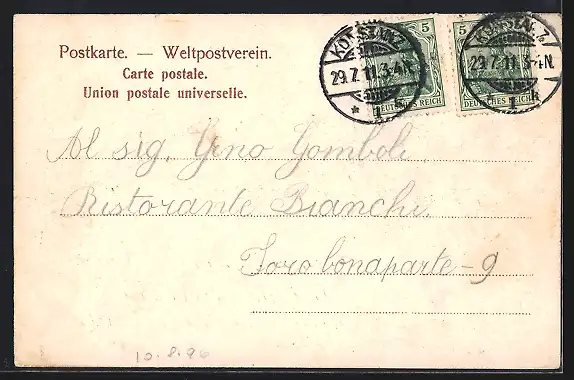 Postkarte. — Weltpostverein.
Carte postale.
Union postale universelle.
5
DEUTSCHES REICH
5
DEUTSCHES REICH
KONSTANZ
29.7.11.3-4N.
* 1 k
KONSTANZ
29.7.11.3-4N.
* 1 k
Al sig. Gino Gomboli
Ristorante Bianchi
Foro bonaparte - 9
10.8.96